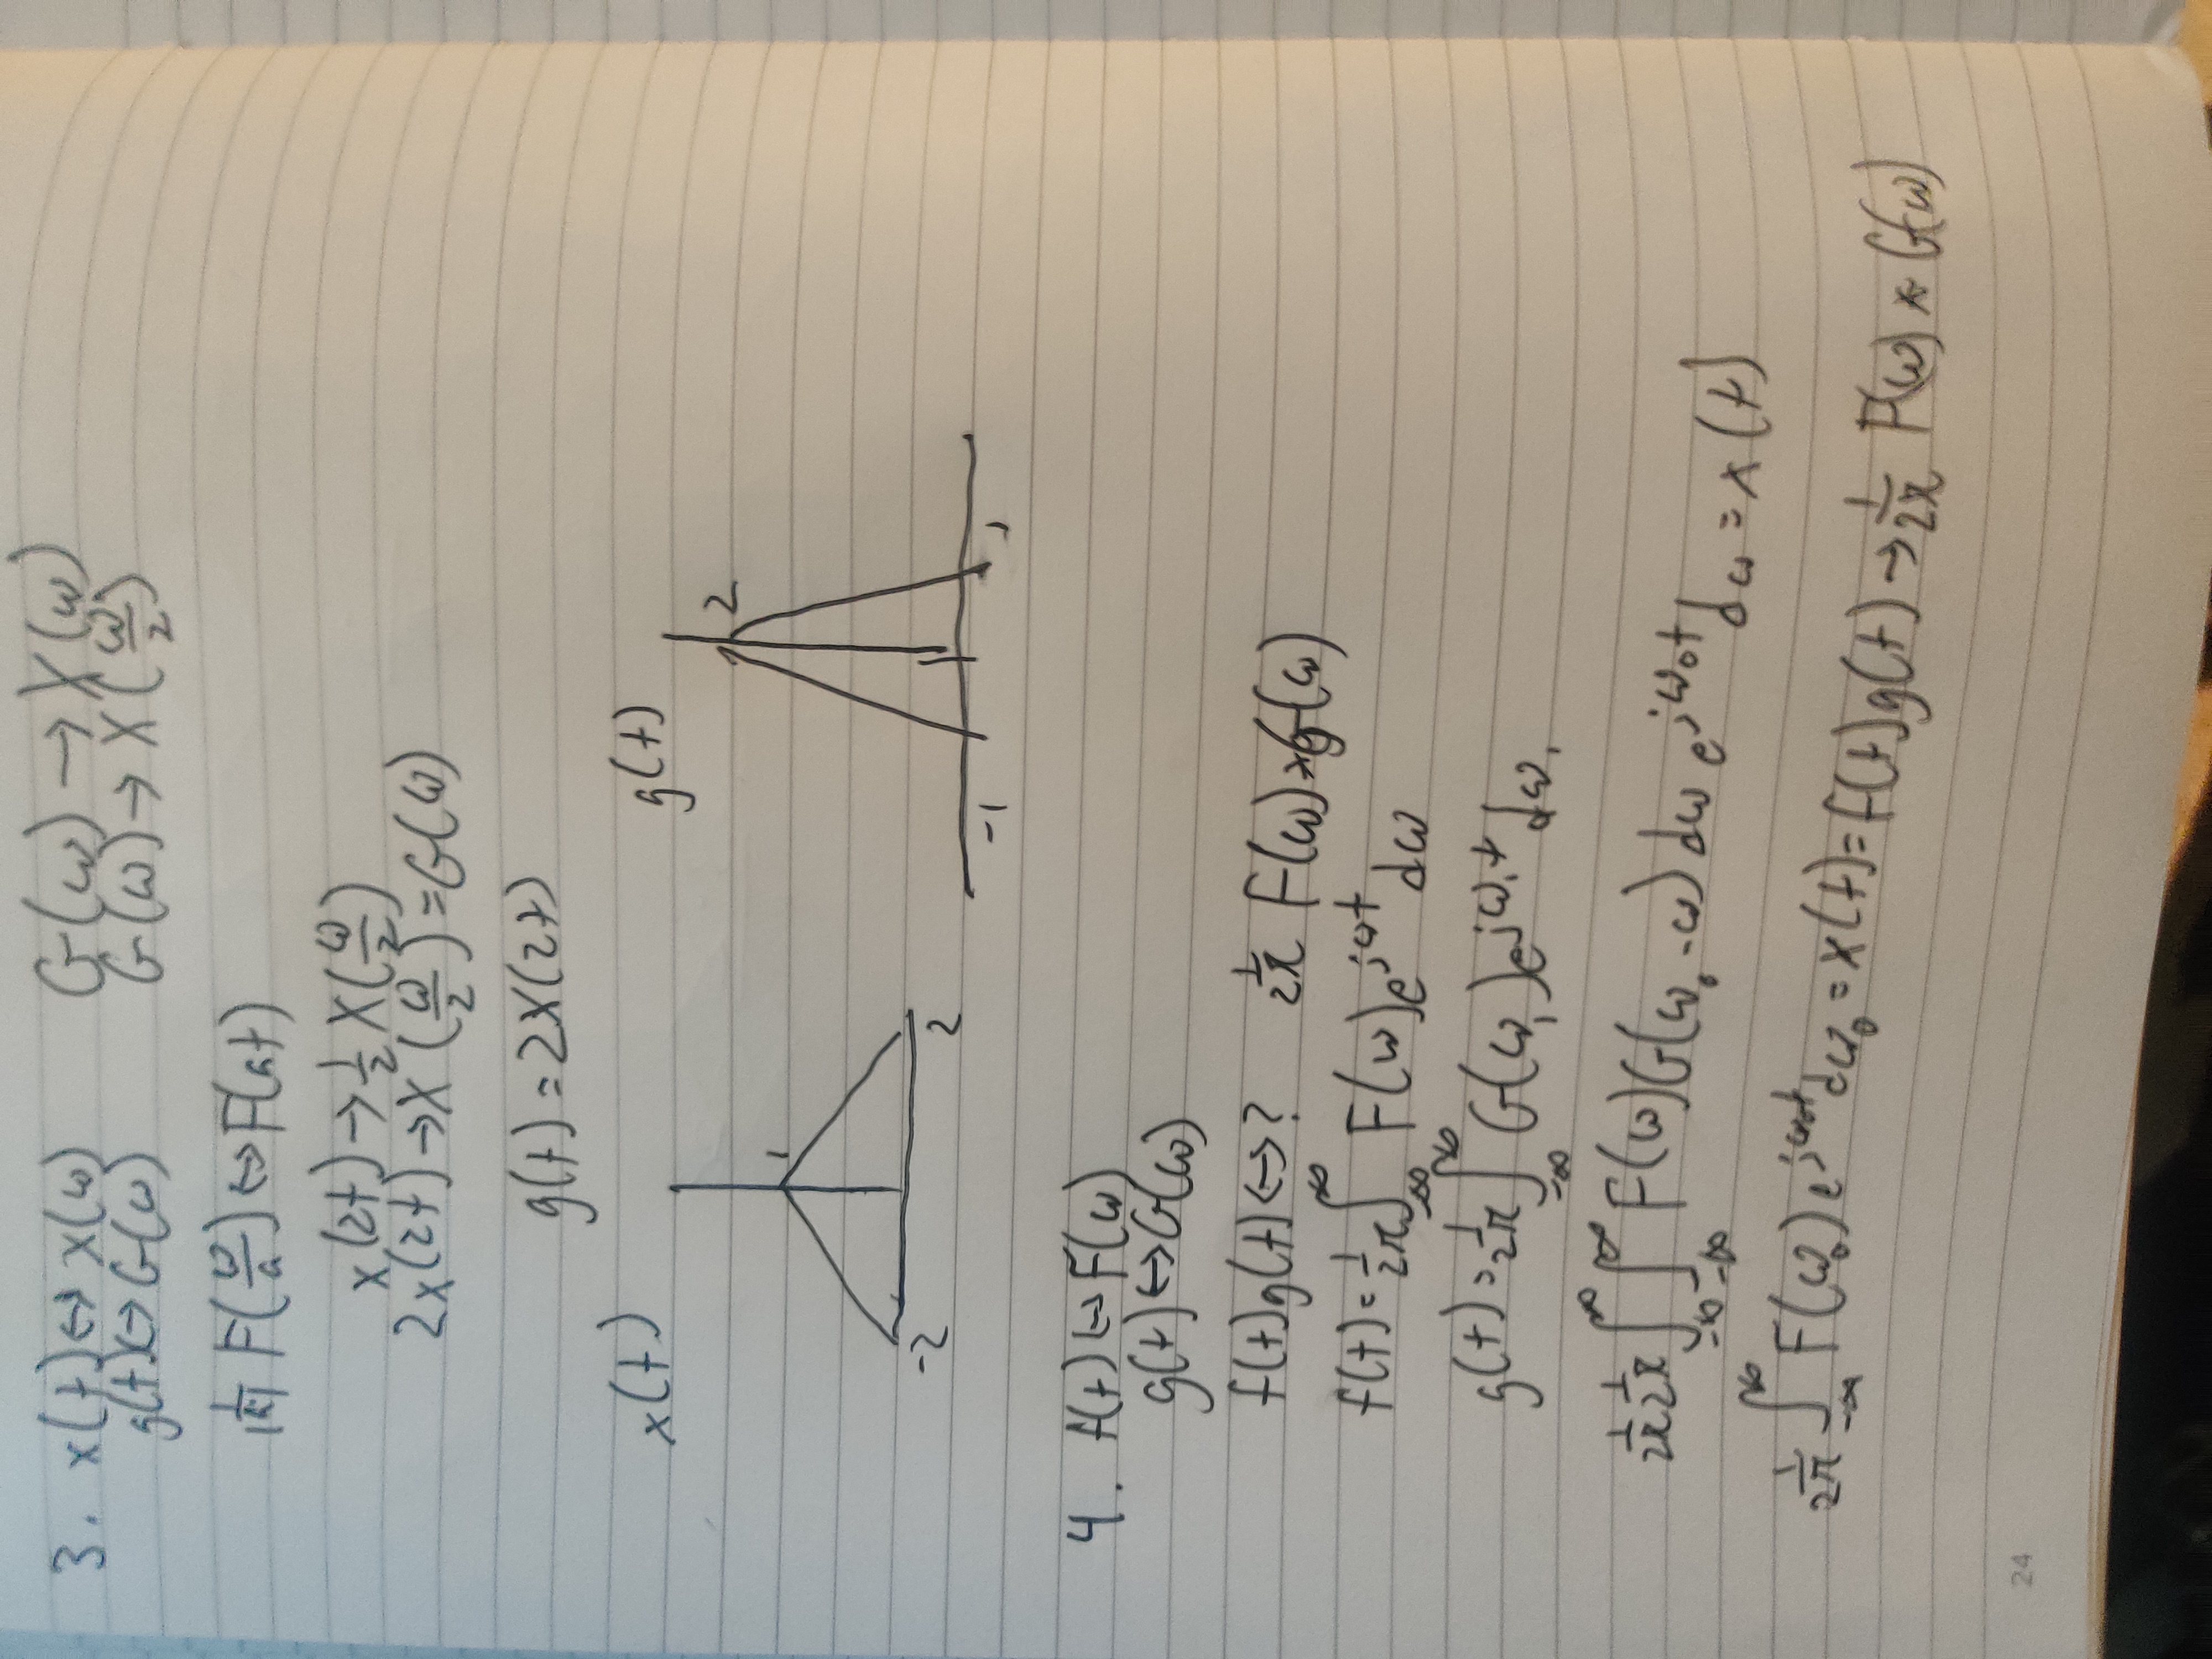 3. x(t)↔x(ω)    G(ω)→X(ω)
g(t)↔G(ω)    G(ω)→X(ω/2)
1/|a| F(ω/a)↔F(at)
x(2t)→1/2 X(ω/2)
2x(2t)→X(ω/2)=G(ω)
g(t)=2X(2t)
x(t)    g(t)
1    2
-2    2    -1    1
4. f(t)↔F(ω)
g(t)↔G(ω)
f(t)g(t)↔?    1/2π F(ω)*G(ω)
f(t)=1/2π ∫_{-∞}^{∞} F(ω)e^{jωt} dω
g(t)=1/2π ∫_{-∞}^{∞} G(ω₁)e^{jω₁t} dω₁
1/2π 1/2π ∫_{-∞}^{∞} ∫_{-∞}^{∞} F(ω)G(ω₀-ω) dω e^{jω₀t} dω = x(t)
1/2π ∫_{-∞}^{∞} F(ω₀) e^{jω₀t} dω₀ = x(t) = f(t)g(t) → 1/2π F(ω) * G(ω)
24